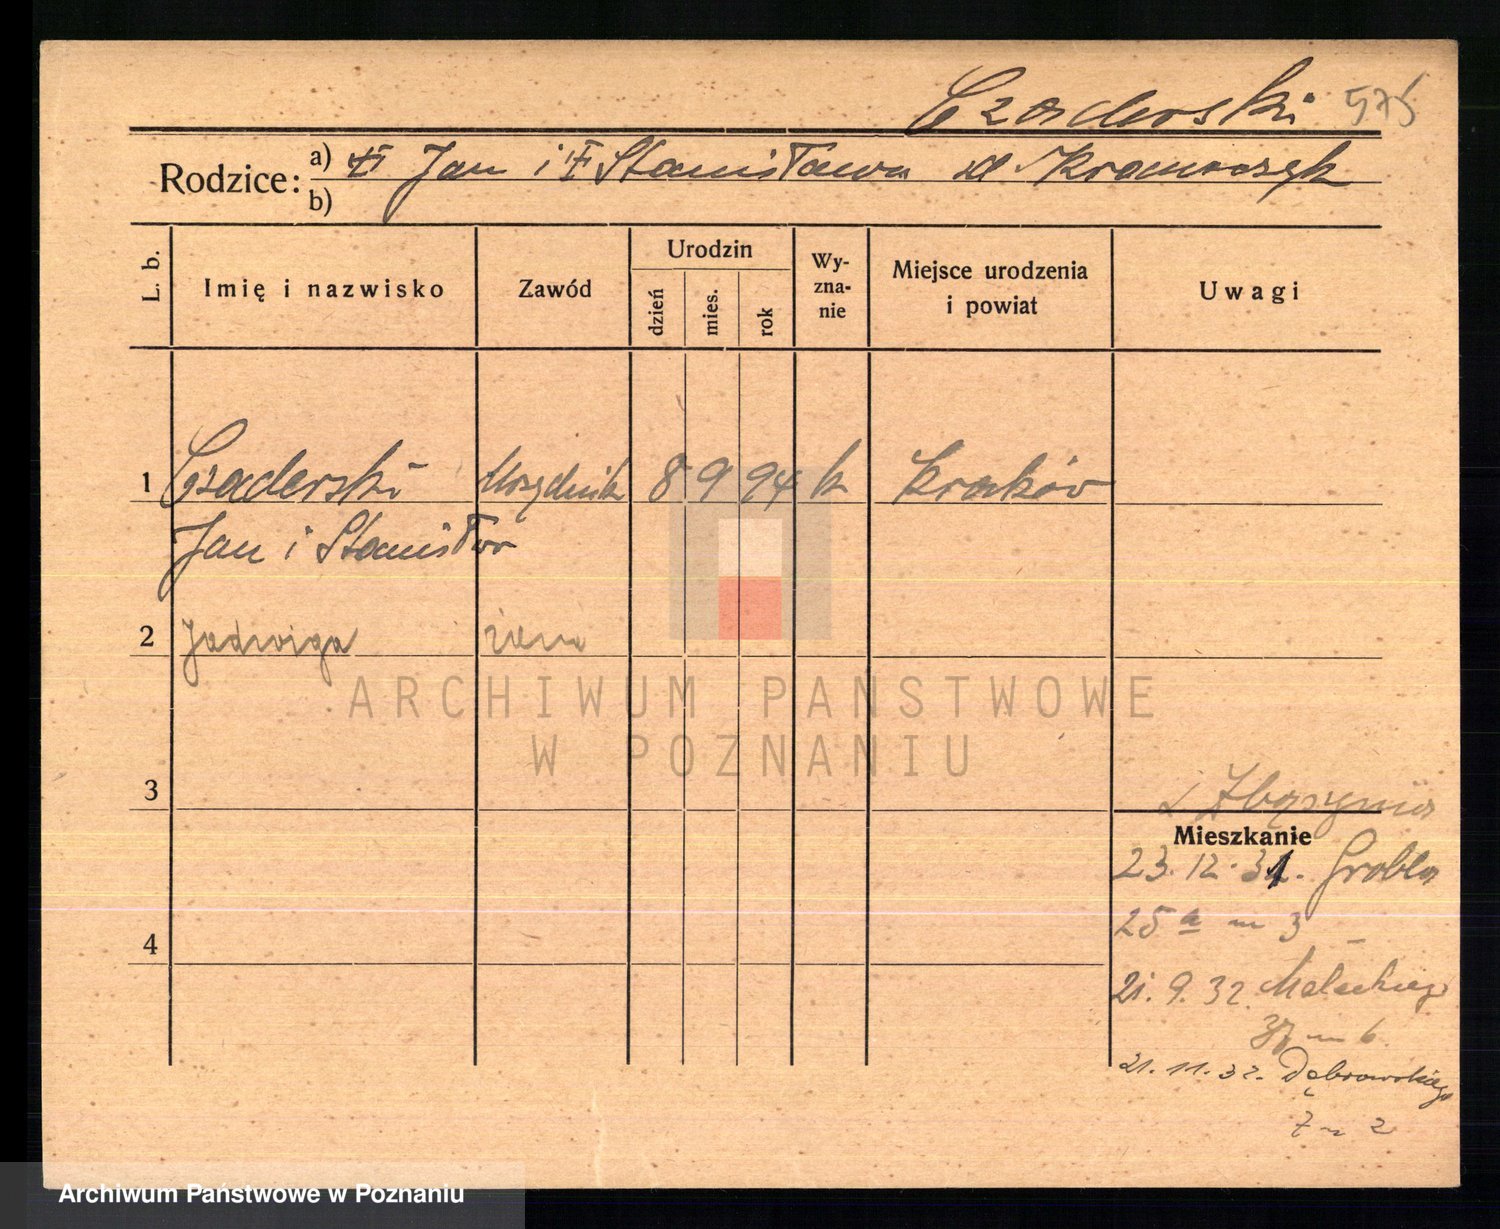 Czaderski 575
Rodzice: a) Jan i Stanisława
b)
L. b.
Imię i nazwisko
Zawód
Urodzin
dzień
mies.
rok
Wy-
zna-
nie
Miejsce urodzenia
i powiat
Uwagi
1 Czaderski Urzędnik 8 9 94 k Kraków
Jan i Stanisława
2 Jadwiga żona
ARCHIWUM PANSTWOWE
W POZNANIU
3
z Zbąszynia
Mieszkanie
23.12.31. Grobla
25 a m 3
4
21.9.32. Małeckiego
m 6
21.11.32. Dąbrowskiego
7 m 2
Archiwum Państwowe w Poznaniu